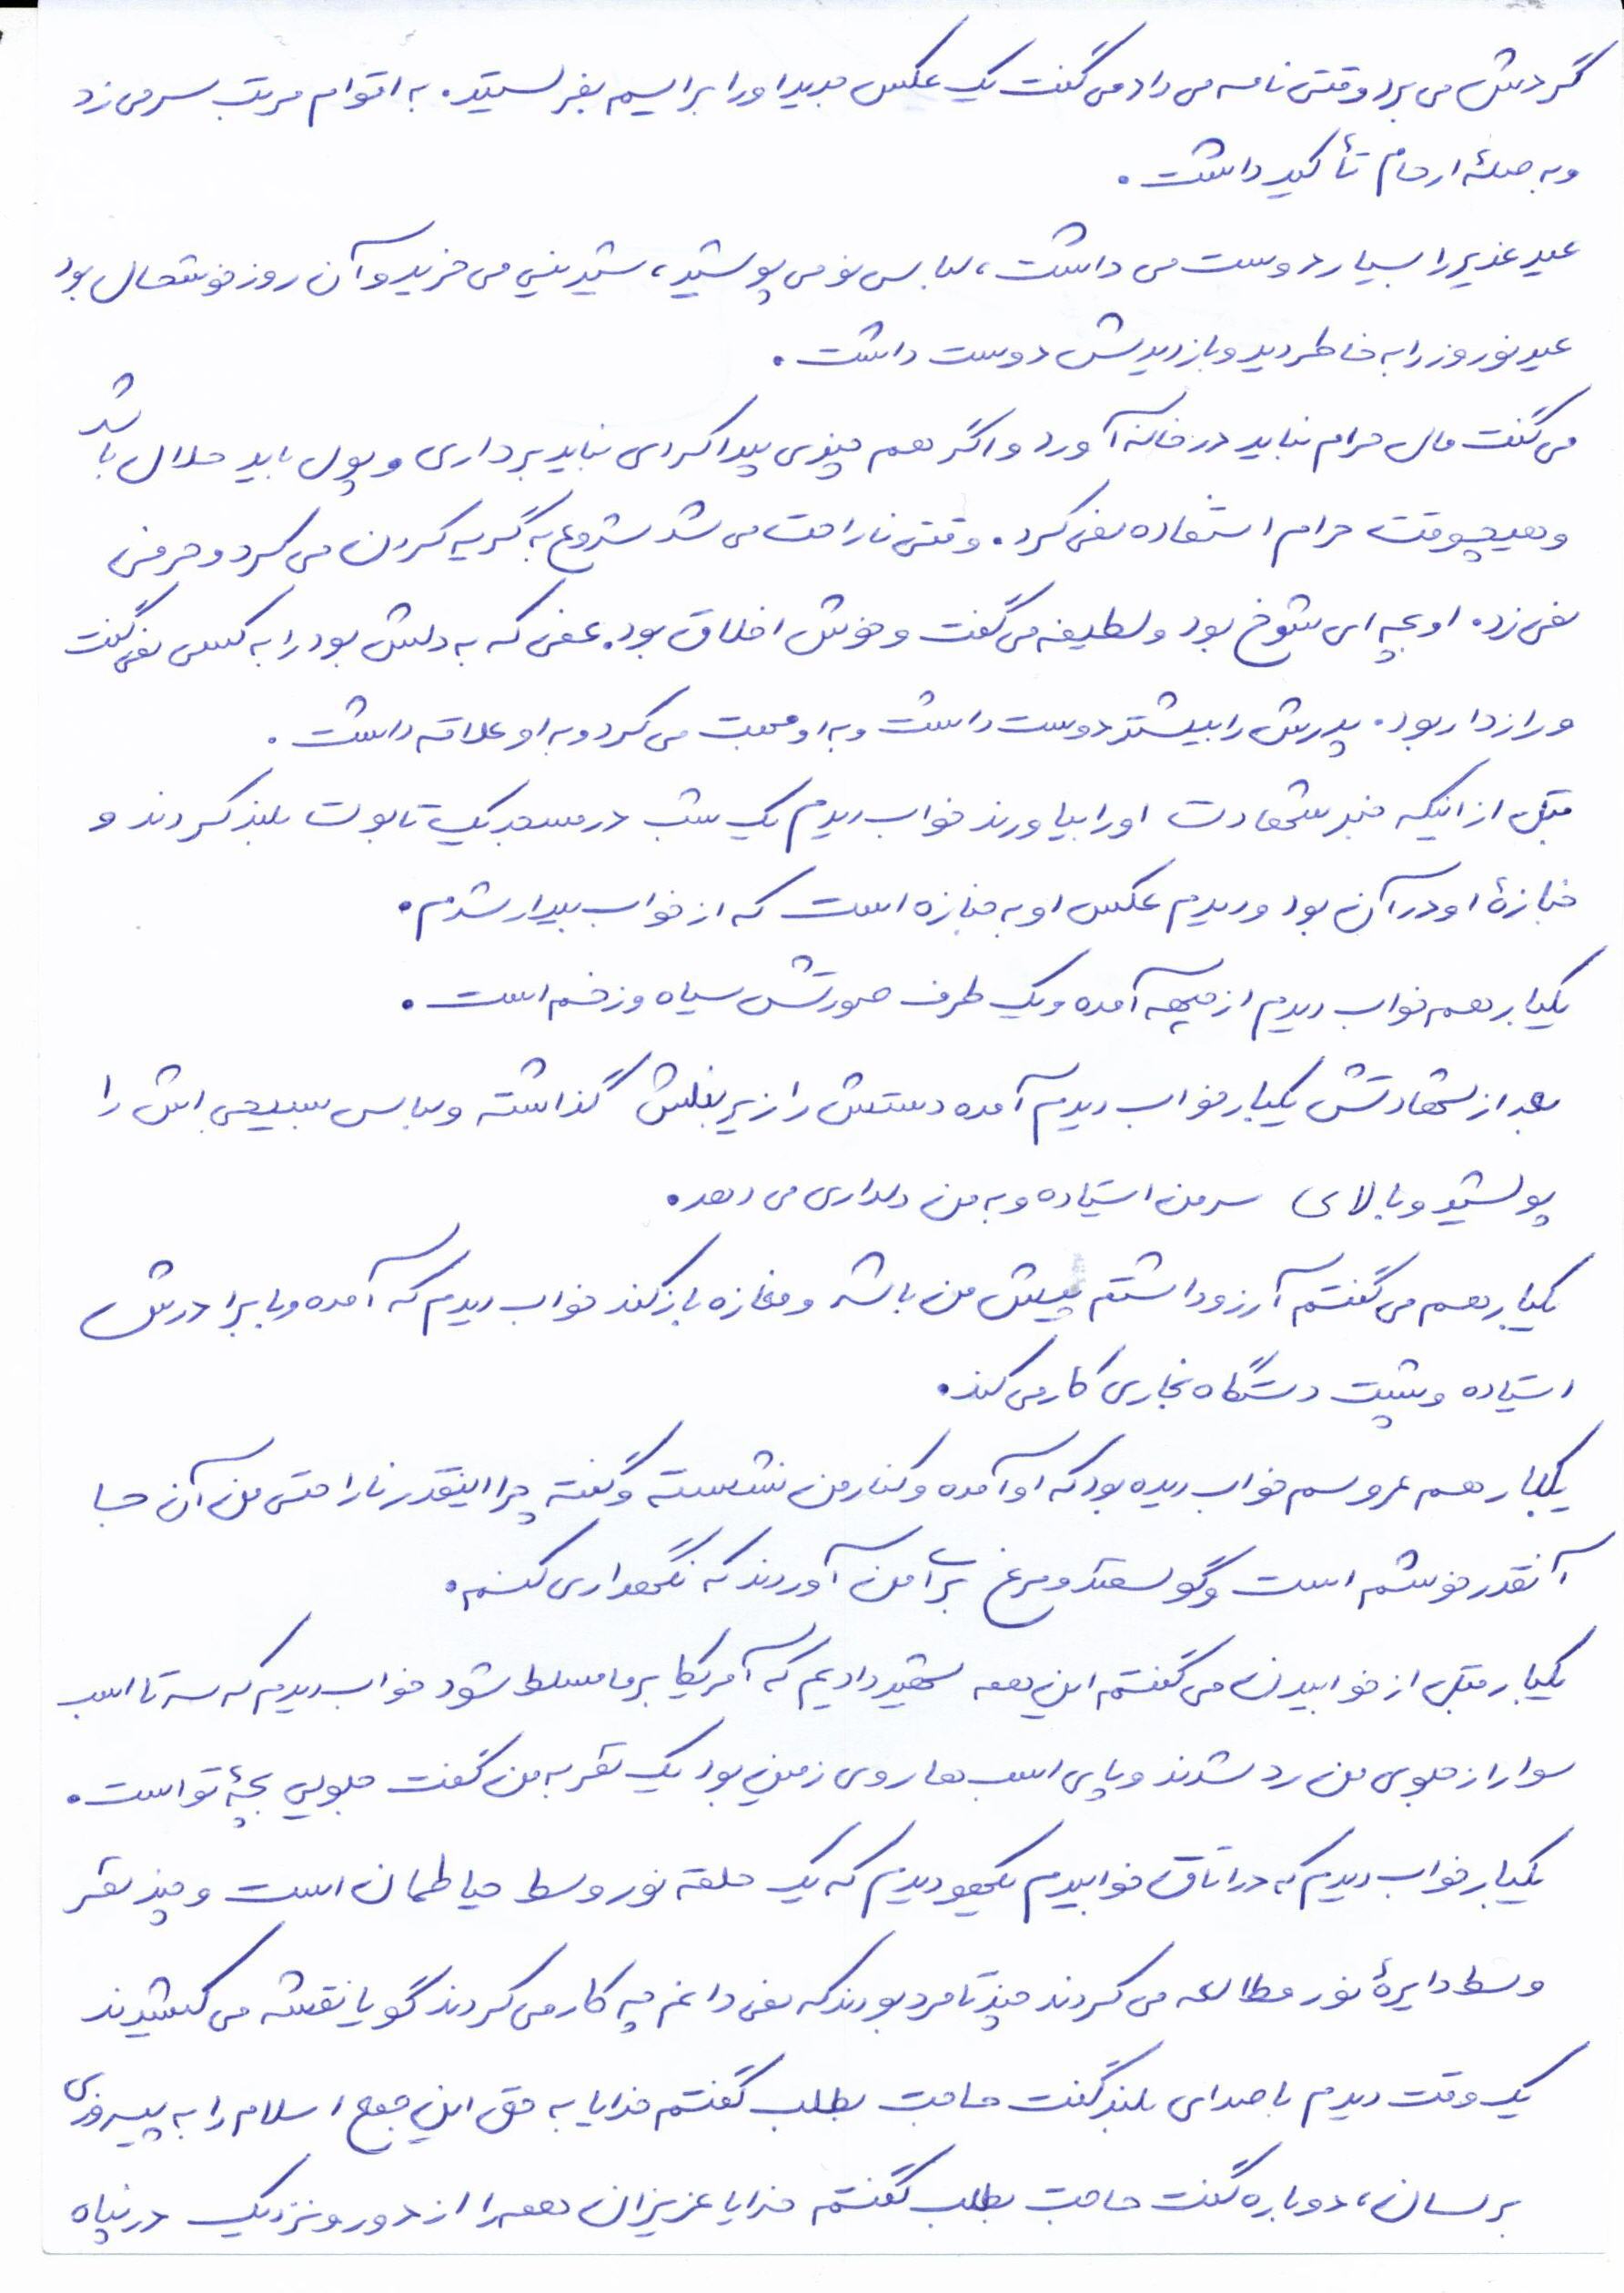 گردش می برد وقتی نامه می داد می گفت یک عکس جدید او را برایم بفرستید. به اقوام مرتب سر می زد
و به صلۀ ارحام تأکید داشت.
عید غدیر را بسیار دوست می داشت، لباس نو می پوشید، شیرینی می خرید و آن روز خوشحال بود
عید نوروز را به خاطر دید و بازدیدش دوست داشت.
می گفت مال حرام نباید در خانه آورد و اگر هم چیزی پیدا کرده ای نباید برداری و پول باید حلال باشد
و هیچوقت حرام استفاده نمی کرد. وقتی ناراحت می شد شروع به گریه کردن می کرد و حرفی
نمی زد. او بچه ای شوخ بود و لطیفه می گفت و خوش اخلاق بود. غمی که به دلش بود را به کسی نمی گفت
و رازدار بود. پدرش را بیشتر دوست داشت و به او محبت می کرد و به او علاقه داشت.
قبل از اینکه خبر شهادت او را بیاورند خواب دیدم یک شب در مسجد یک تابوت بلند کردند و
جنازۀ او در آن بود و دیدم عکس او به جنازه است که از خواب بیدار شدم.
یکبار هم خواب دیدم از جبهه آمده و یک طرف صورتش سیاه و زخم است.
بعد از شهادتش یکبار خواب دیدم آمده دستش را زیر بغلش گذاشته و لباس بسیجی اش را
پوشید و بالای سر من ایستاده و به من دلداری می دهد.
یکبار هم می گفتم آرزو داشتم پیش من باشد و مغازه باز کند خواب دیدم که آمده و با برادرش
ایستاده و پشت دستگاه نجاری کار می کند.
یکبار هم عروسم خواب دیده بود که او آمده و کنار من نشسته و گفته چرا اینقدر ناراحتی من آن جا
آنقدر خوشم است و گوسفند و مرغ برای من آوردند که نگهداری کنم.
یکبار قبل از خوابیدن می گفتم این همه شهید دادیم که آمریکا بر ما مسلط شود خواب دیدم که سه تا اسب
سوار از جلوی من رد شدند و پای اسب ها روی زمین بود یک نفر به من گفت جلویی بچۀ تو است.
یکبار خواب دیدم که در اتاق خوابیدم یکهو دیدم که یک حلقه نور وسط حیاطمان است و چند نفر
وسط دایرۀ نور مطالعه می کردند چند تا مرد بودند که نمی دانم چه کار می کردند گویا نقشه می کشیدند
یک وقت دیدم با صدای بلند گفت حاجت بطلب گفتم خدایا به حق این جمع اسلام را به پیروزی
برسان، دوباره گفت حاجت بطلب گفتم خدایا عزیزان همه را از دور و نزدیک در پناه